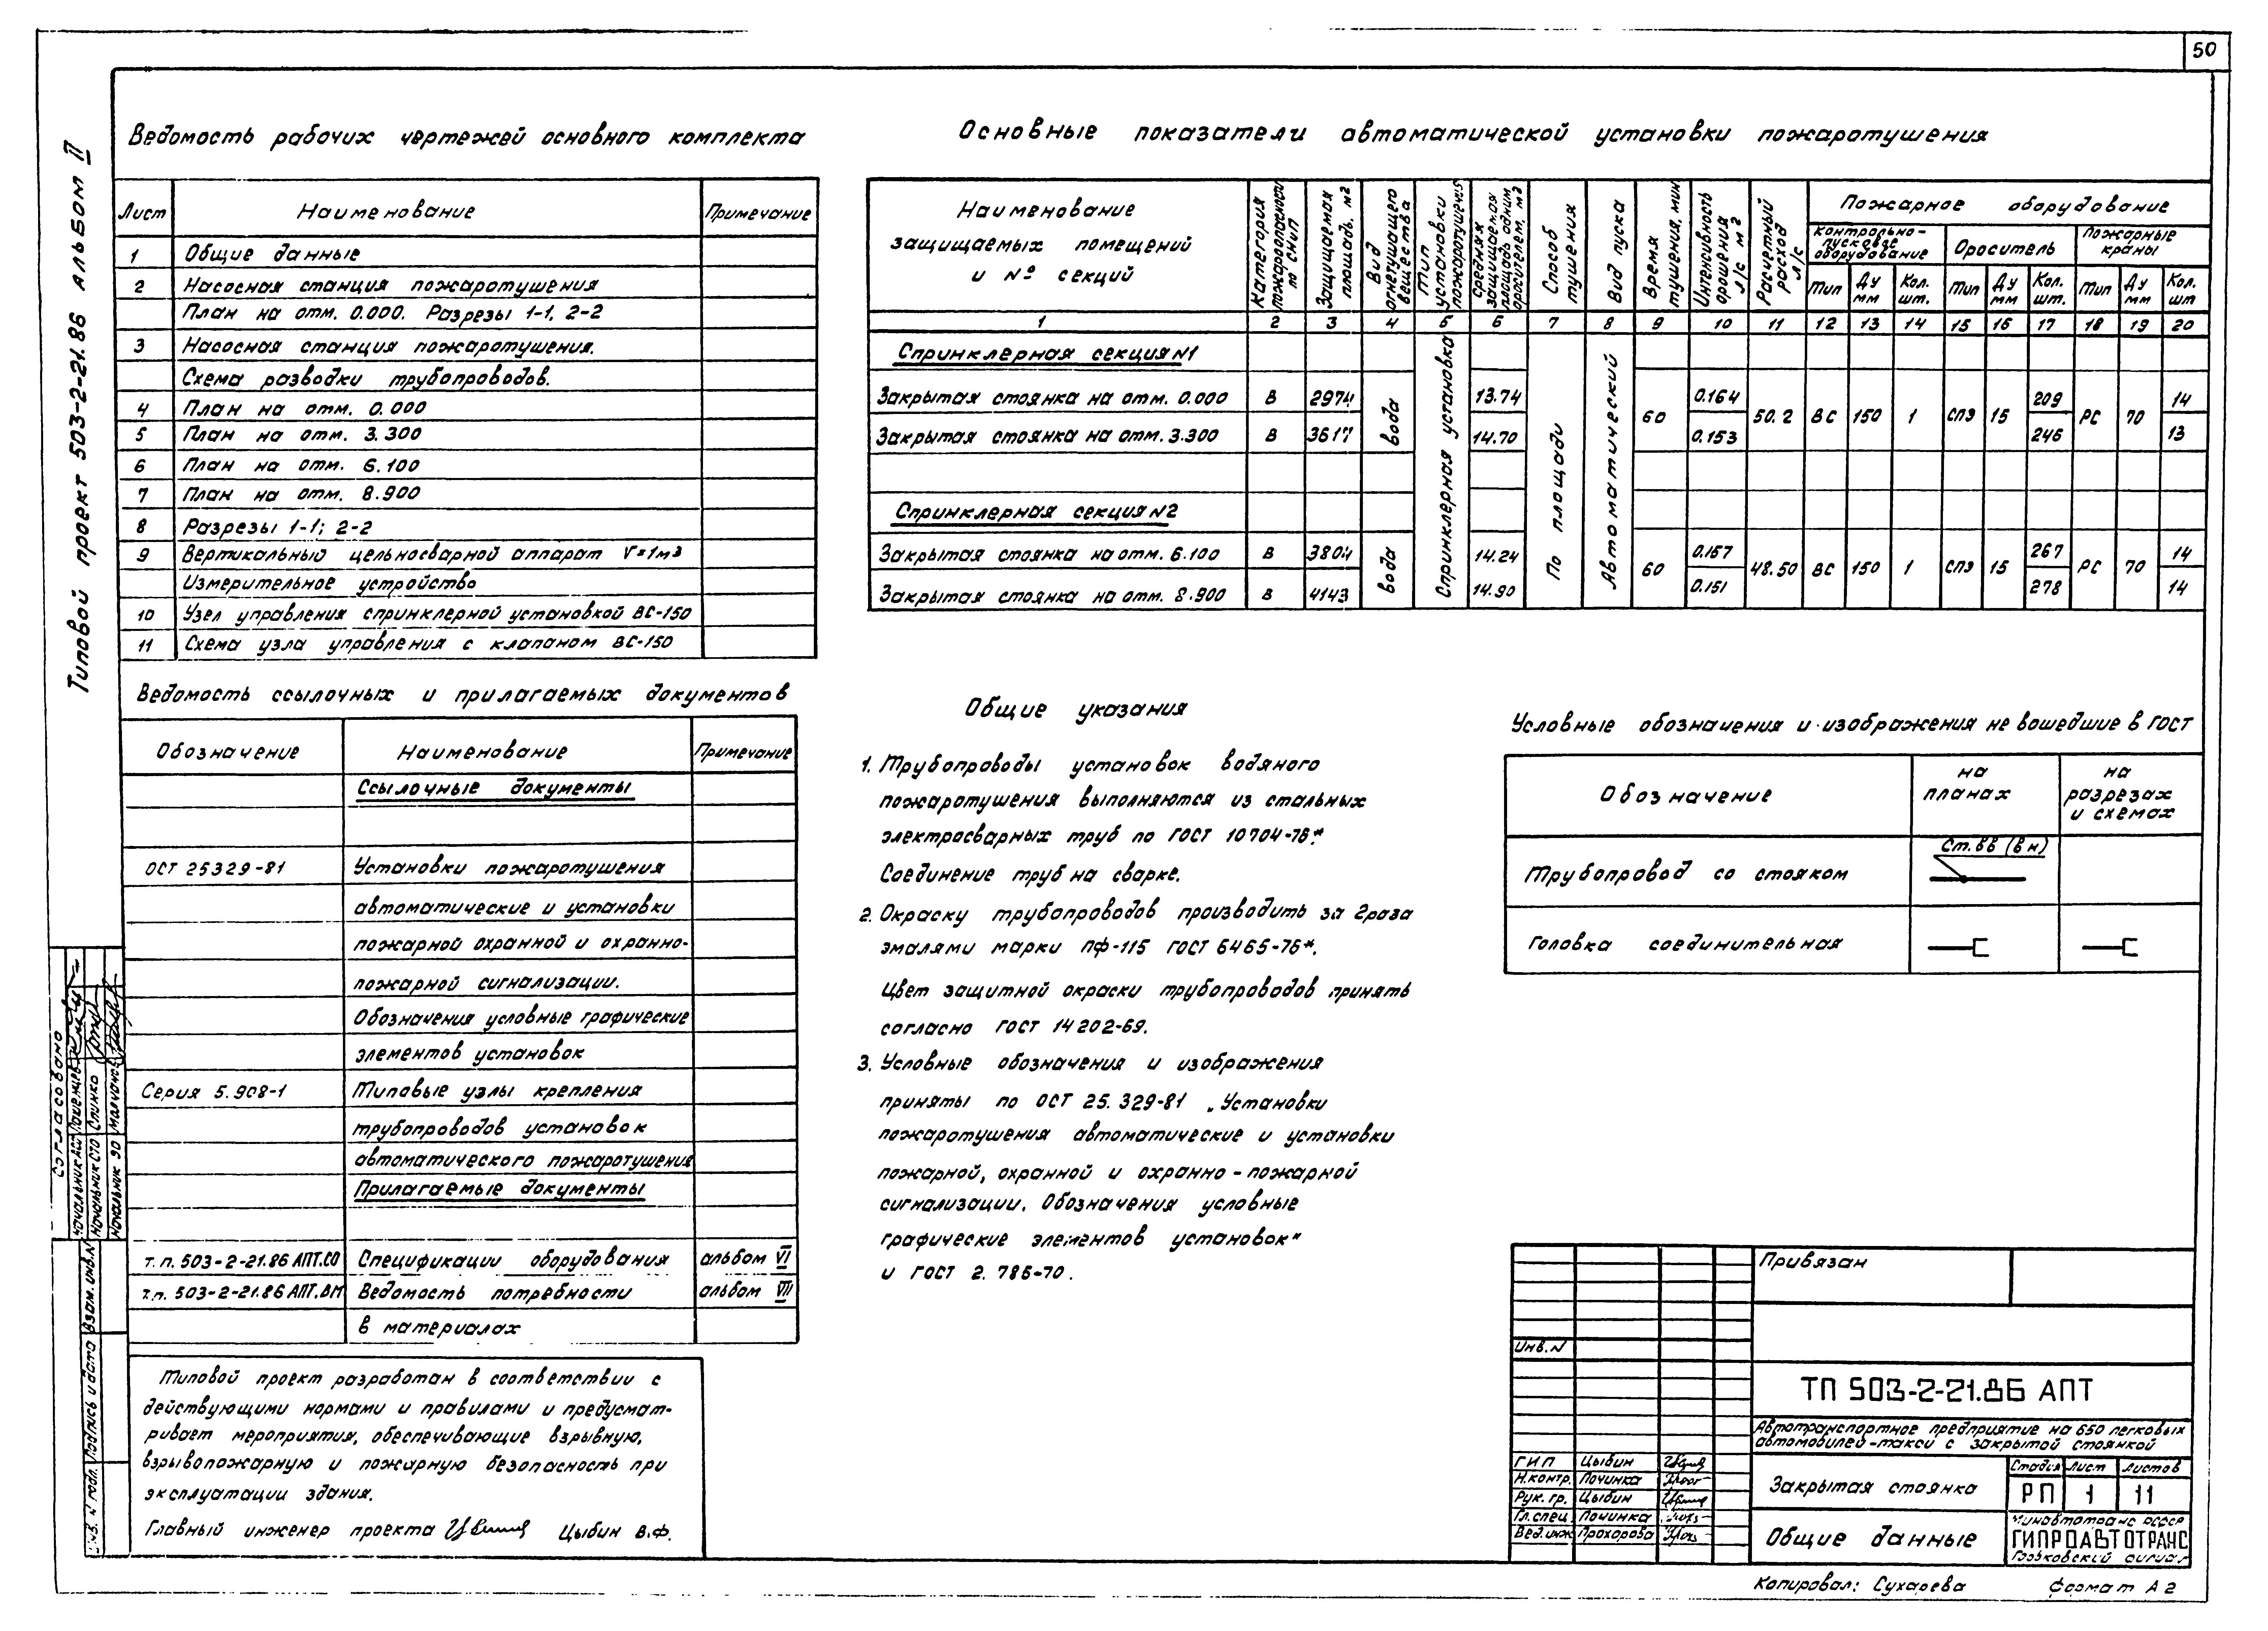 50
Типовой проект 503-2-21.86 Альбом II
Ведомость рабочих чертежей основного комплекта
Лист Наименование Примечание
1 Общие данные
2 Насосная станция пожаротушения
План на отм. 0.000. Разрезы 1-1, 2-2
3 Насосная станция пожаротушения.
Схема разводки трубопроводов.
4 План на отм. 0.000
5 План на отм. 3.300
6 План на отм. 6.100
7 План на отм. 8.900
8 Разрезы 1-1; 2-2
9 Вертикальный цельносварной аппарат V=1м3
Измерительное устройство
10 Узел управления спринклерной установкой ВС-150
11 Схема узла управления с клапаном ВС-150
Основные показатели автоматической установки пожаротушения
Наименование защищаемых помещений и №о секций
Категория пожароопасности по СНиП
Защищаемая площадь, м2
Вид огнетушащего вещества
Тип установки пожаротушения
Средняя защищаемая площадь одним оросителем, м2
Способ тушения
Вид пуска
Время тушения, мин
Интенсивность орошения л/с м2
Расчетный расход л/с
Пожарное оборудование
Контрольно-пусковое оборудование Ороситель Пожарные краны
Тип Ду мм Кол. шт. Тип Ду мм Кол. шт. Тип Ду мм Кол. шт
1 2 3 4 5 6 7 8 9 10 11 12 13 14 15 16 17 18 19 20
Спринклерная секция N1
Закрытая стоянка на отм. 0.000 В 2974 13.74 0.164 209 14
вода 60 50.2 ВС 150 1 СПЭ 15 РС 70
Закрытая стоянка на отм. 3.300 В 3617 14.70 0.153 246 13
Спринклерная установка
По площади
Автоматический
Спринклерная секция N2
Закрытая стоянка на отм. 6.100 В 3804 14.24 0.157 267 14
вода 60 48.50 ВС 150 1 СПЭ 15 РС 70
Закрытая стоянка на отм. 8.900 В 4143 14.90 0.151 278 14
Ведомость ссылочных и прилагаемых документов
Обозначение Наименование Примечание
Ссылочные документы
ОСТ 25329-81 Установки пожаротушения
автоматические и установки
пожарной охранной и охранно-
пожарной сигнализации.
Обозначения условные графические
элементов установок
Серия 5.908-1 Типовые узлы крепления
трубопроводов установок
автоматического пожаротушения
Прилагаемые документы
т.п. 503-2-21.86 АПТ.СО Спецификации оборудования альбом VI
т.п. 503-2-21.86 АПТ.ВМ Ведомость потребности альбом VII
в материалах
Типовой проект разработан в соответствии с
действующими нормами и правилами и предусмат-
ривает мероприятия, обеспечивающие взрывную,
взрывопожарную и пожарную безопасность при
эксплуатации здания.
Главный инженер проекта Цыбин В.Ф.
Общие указания
1. Трубопроводы установок водяного
пожаротушения выполняются из стальных
электросварных труб по ГОСТ 10704-76*.
Соединение труб на сварке.
2. Окраску трубопроводов производить за 2раза
эмалями марки ПФ-115 ГОСТ 6465-76*.
Цвет защитной окраски трубопроводов принять
согласно ГОСТ 14202-69.
3. Условные обозначения и изображения
приняты по ОСТ 25.329-81 „Установки
пожаротушения автоматические и установки
пожарной, охранной и охранно-пожарной
сигнализации. Обозначения условные
графические элементов установок"
и ГОСТ 2.786-70.
Условные обозначения и изображения не вошедшие в ГОСТ
Обозначение на планах на разрезах и схемах
Трубопровод со стояком Ст.вв (вн)
Головка соединительная
Согласовано
Начальник СТО Спинко
Начальник ЭО Малчанов
Взам. инв.N
Подпись и дата
Привязан
Инв.N
ТП 503-2-21.86 АПТ
Автотранспортное предприятие на 650 легковых
автомобилей-такси с закрытой стоянкой
ГИП Цыбин
Н.контр. Починка
Рук. гр. Цыбин
Гл.спец. Починка
Вед.инж Прохорова
Закрытая стоянка
Стадия Лист Листов
РП 1 11
Общие данные
Минавтотранс РСФСР
ГИПРОАВТОТРАНС
Копировал: Сухарева Формат А2